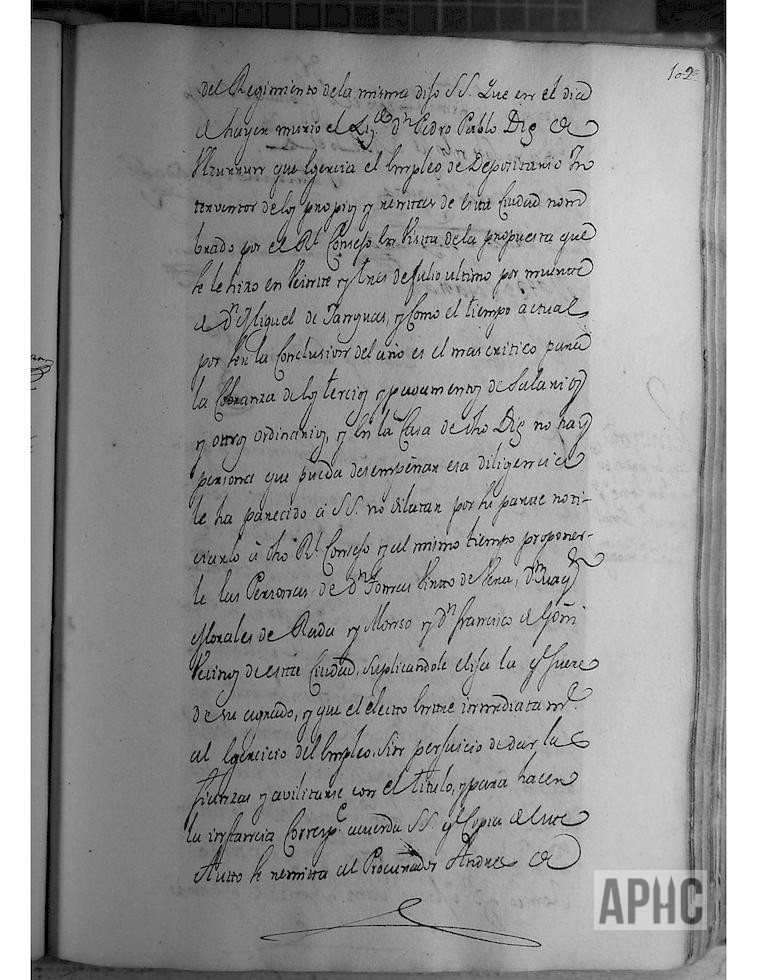 102
del Regimiento dela misma dijo SS. Que en el dia
de hayer murio el Liz.do Dn Pedro Pablo Diz de
que egercia el Empleo de Depositario In
terventor delos propios y rentas de esta Ciudad nom
brado por el Rl. Consejo en Vista de la propuesta que
se le hizo en Veinte y tres de Julio ultimo por muerte
de Dn Miguel de Tanguas, y como el tiempo actual
por ser la Conclusion del año es el mas critico para
la Cobranza de los tercios y pagamentos de Salarios
y otros ordinarios, y en la Casa de dho Diz no hay
persona que pueda desempeñar esa diligencia
le ha parecido a SS. no dilatar por su parte noti-
ciarlo a dho Rl. Consejo y al mismo tiempo proponer-
le las Personas de Dn Tomas Pinto de Dn
Morales de Rada y Alonso y Dn Francisco de
Vecinos de esta Ciudad, Suplicandole elija la q.e fuere
de su agrado, y que el electo entre inmediatam.te
al Egercicio del Empleo, sin perjuicio de dar las
fianzas y avilitarse con el titulo, y para hacer
la instancia Corresp.te acuerda SS. q.e Copia de este
Autto se remita al Procurador Andres de
APHC